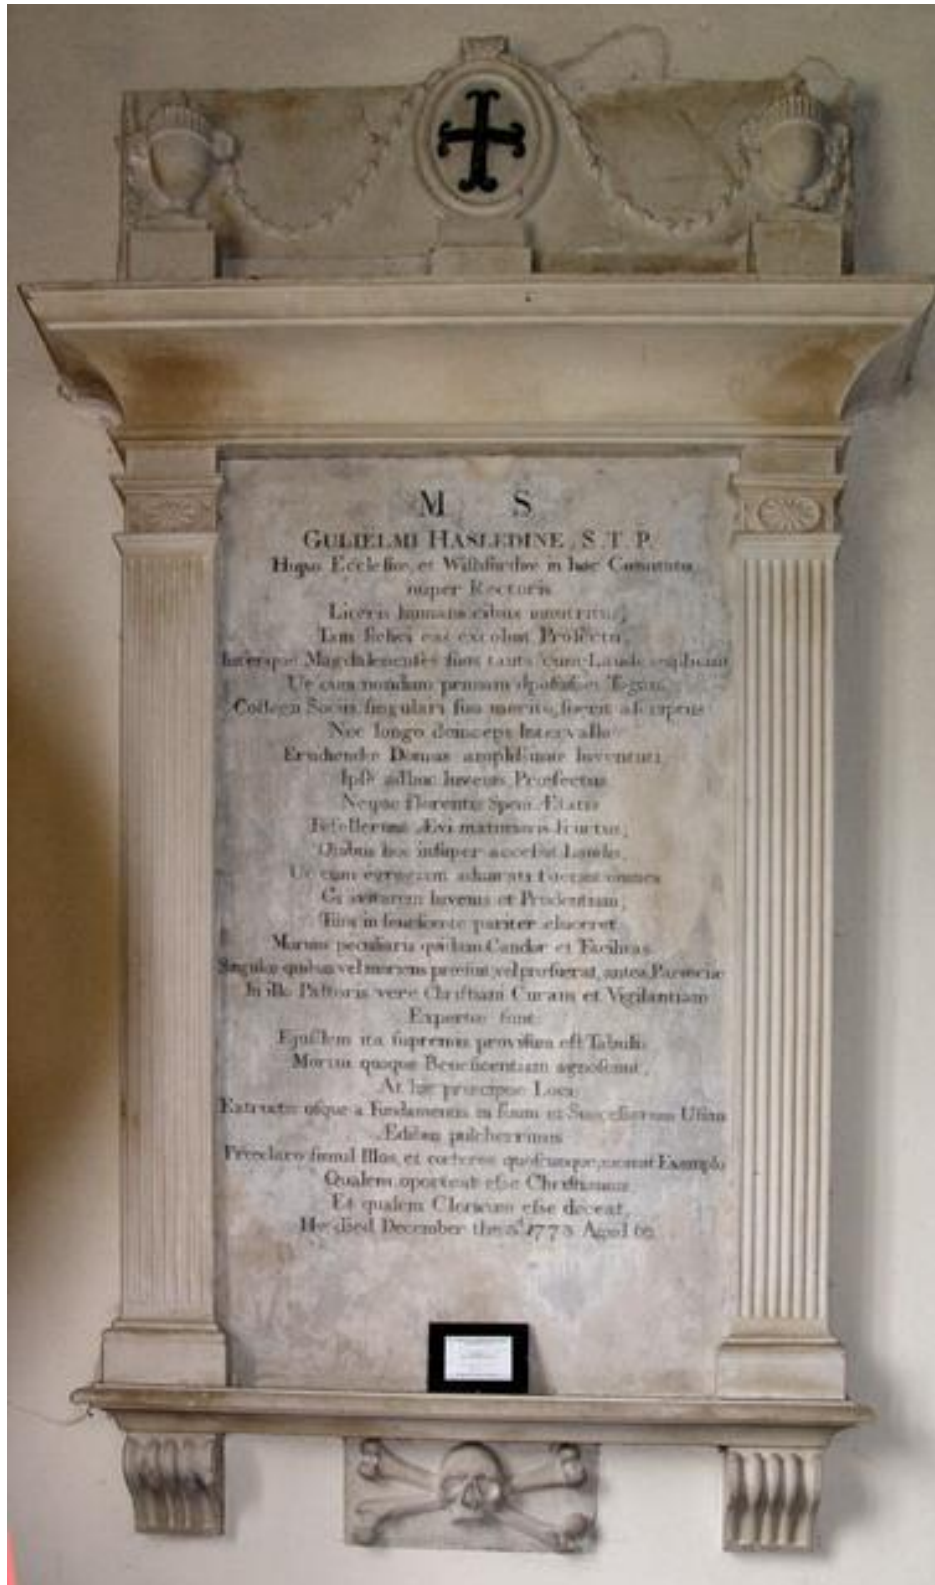 M S
GULIELMI HASLEDINE, S. T. P.
Hujus Ecclesiæ, et in hoc Comitatu
nuper Rectoris
Literis humanioribus innutritus,
Tam felici eas excoluit Profectu,
Interque Magdalenenses suos tanta cum Laude
Ut cum nondum Togam,
Collegii Socius singulari suo merito, fuerit ascriptus
Nec longo deinceps Intervallo
Erudiendæ Domus amplissimæ Iuventuti
Ipse adhuc Iuvenis Præfectus
Neque florentis Spem Ætatis
Fefellerunt Ævi maturioris fructus,
Quibus hoc insuper accessit Laudis,
Ut cum egregiam omnes
Gravitatem Iuvenis et Prudentiam,
in senescente pariter eluceret
Morum peculiaris quidam Candor et Facilitas
Singulæ quibus vel moriens præfuit, vel præfuerat, antea, Parœciæ
In illo Pastoris vere Christiani Curam et Vigilantiam
Expertæ sunt:
Ejusdem ita supremis provisum est Tabulis
Mortui quoque Beneficentiam agnoscunt,
At hic præcipue Loci
Extructis usque a Fundamentis in suum et Successorum Usum
Ædibus pulcherrimis
Præclaro simul Illos, et cœteros quoscunque, monuit Exemplo
Qualem oporteat esse Christianum
Et qualem Clericum esse deceat,
He died December the 1773 Aged